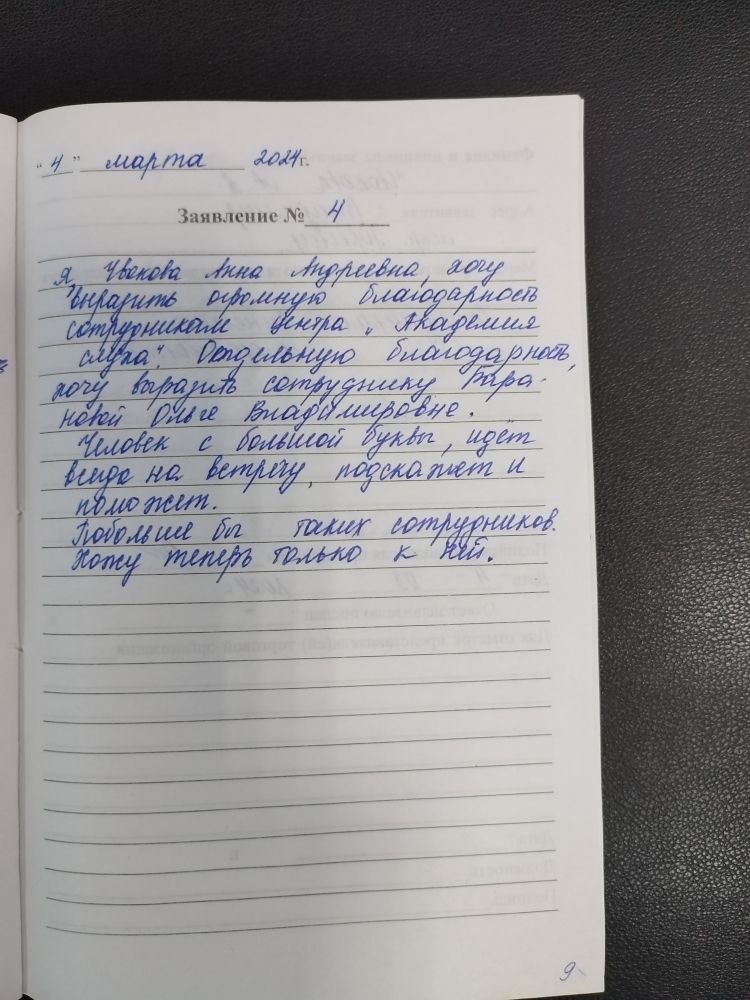 "4" марта 2024г.
Заявление № 4
Я, Увокова Анна Андреевна, хочу
выразить огромную благодарность
сотрудникам центра „Академия
слуха". Отдельную благодарность,
хочу выразить сотруднику Бара-
новой Ольге Владимировне.
Человек с большой буквы, идёт
всегда на встречу, подскажет и
поможет.
Побольше бы таких сотрудников.
Хожу теперь только к ней.
9